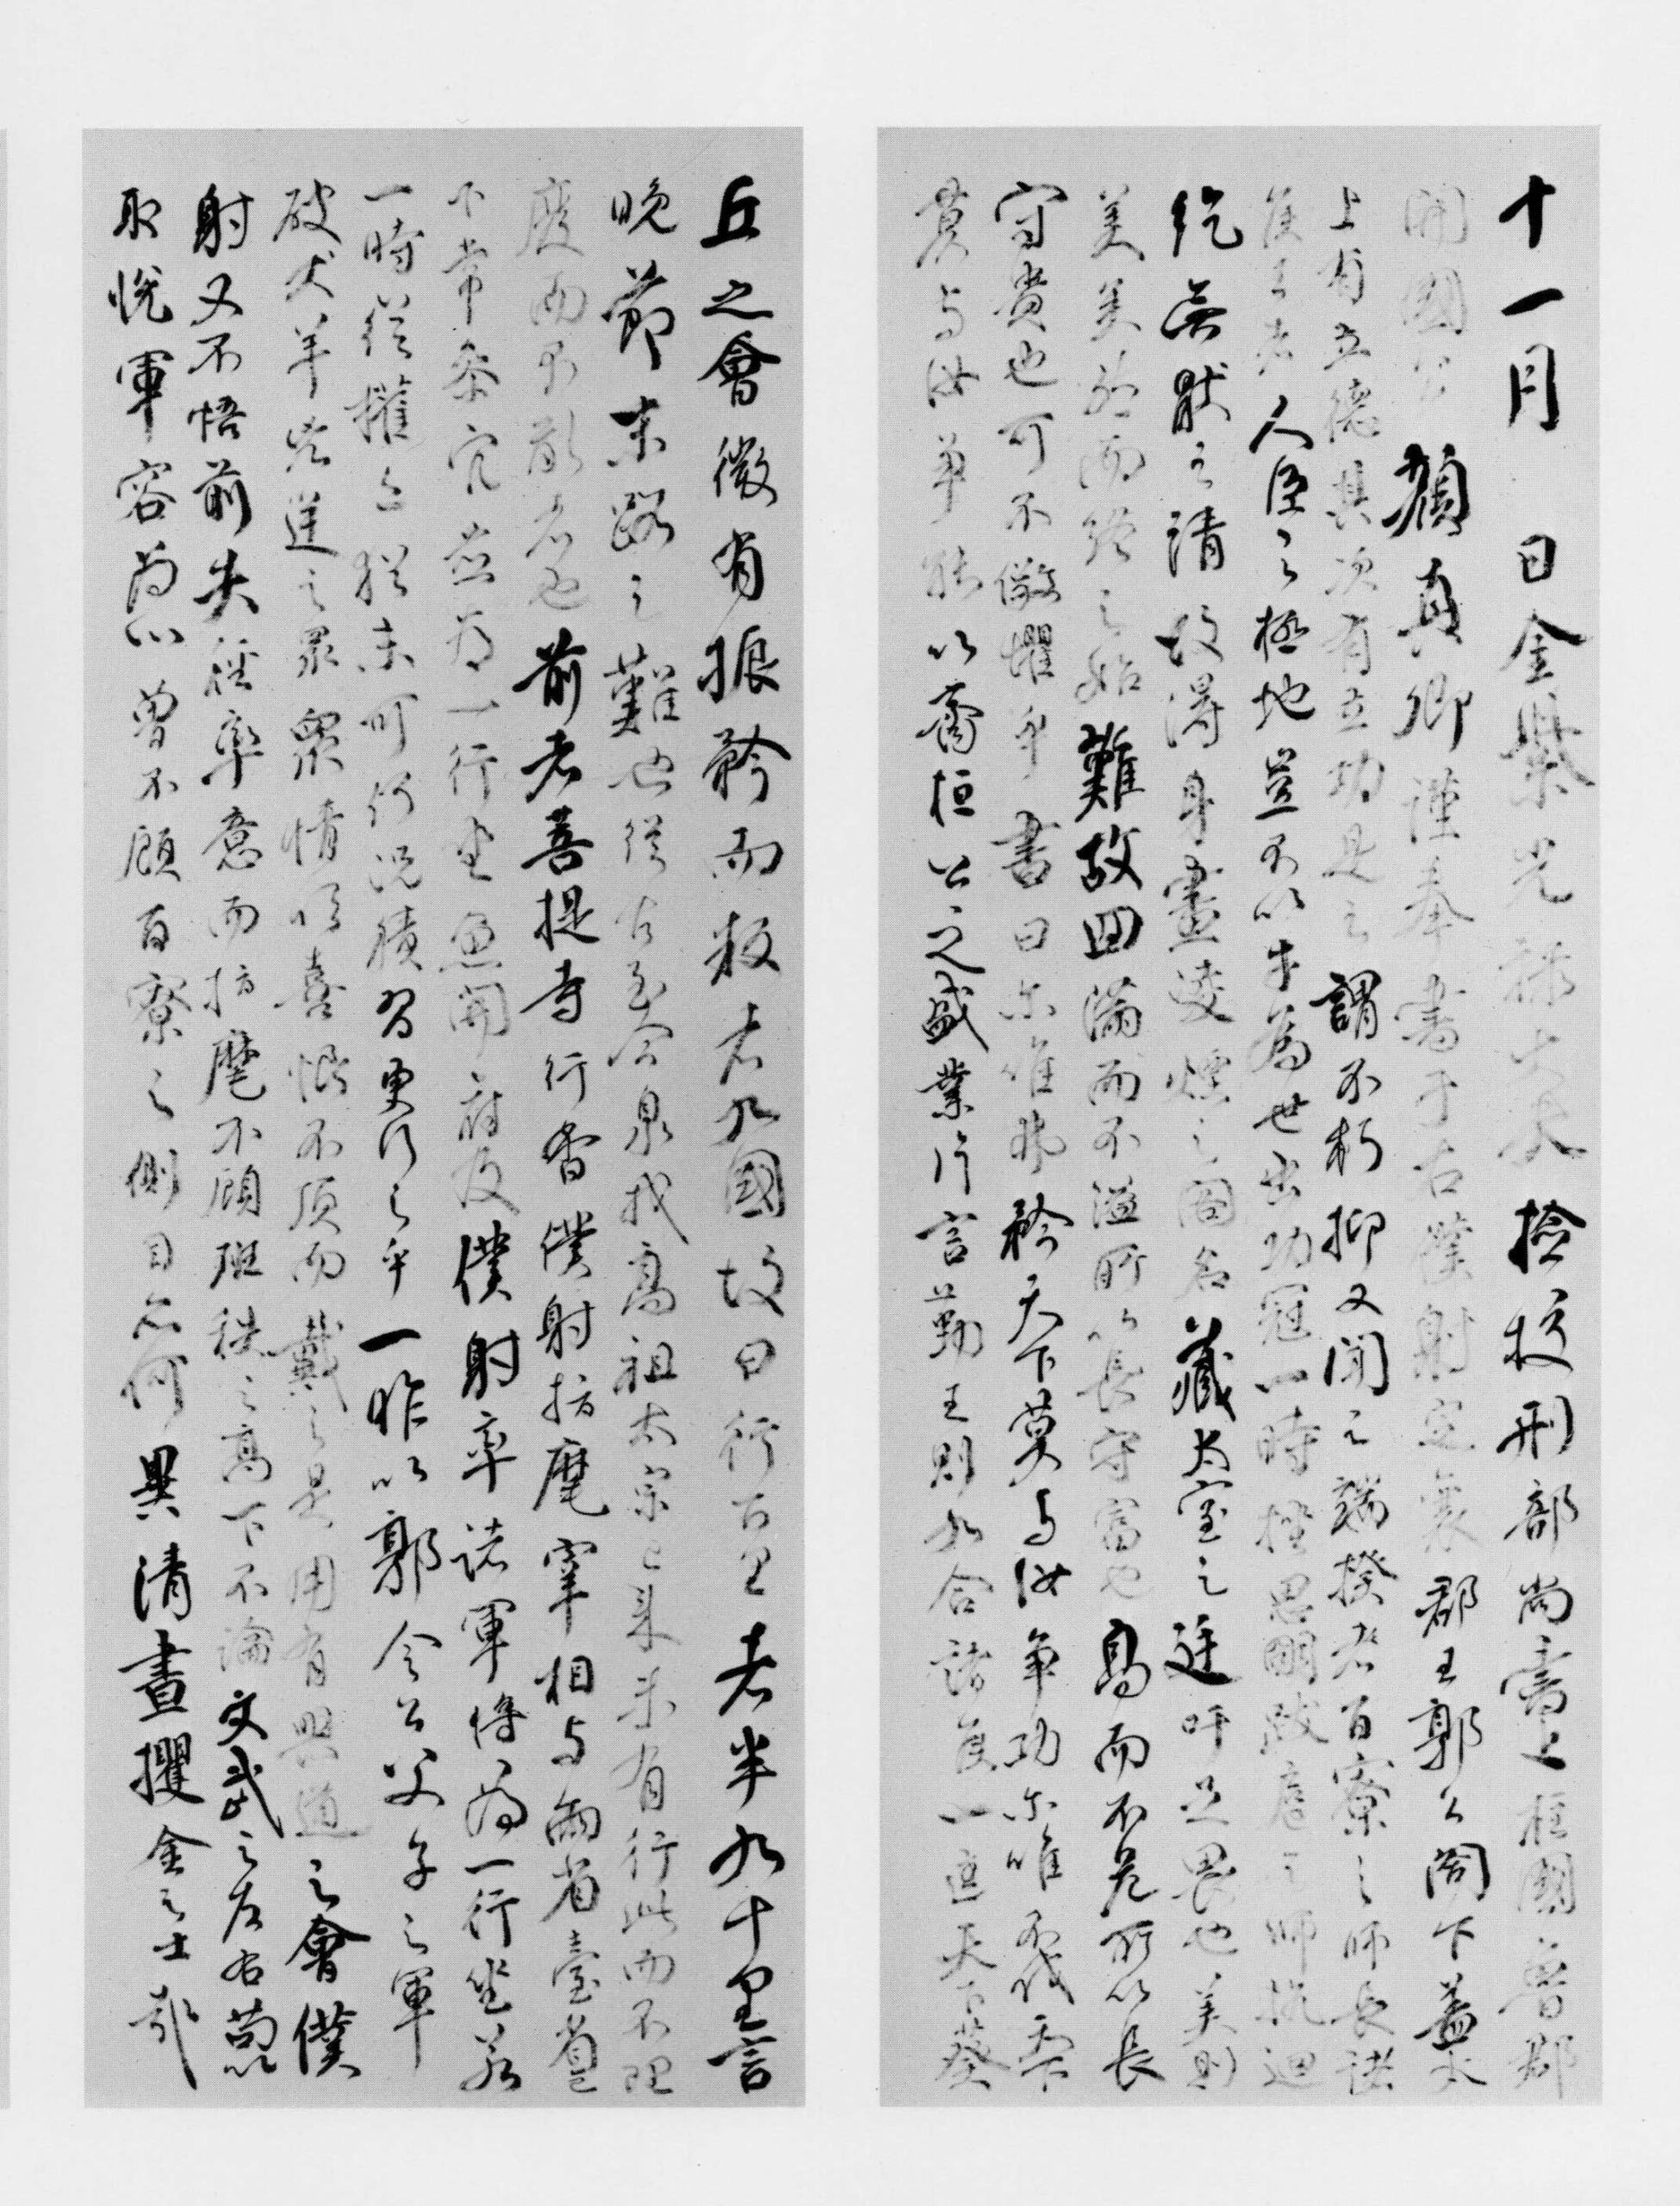 十一月 日金紫光祿大夫撿挍刑部尚書上柱國魯郡
開國公顏真卿謹奉書于右僕射定襄郡王郭公閣下蓋太
上有立德其次有立功是之謂不朽抑又聞之端揆者百寮之師長諸
侯王者人臣之極地豈不以才為世出功冠一時挫思明跋扈之師抗迴
紇無猒之請故得身畫凌煙之閣名藏太室之廷吁足畏也美則
美矣然而終之始難故曰滿而不溢所以長守富也高而不危所以長
守貴也可不儆懼乎書曰爾唯弗矜天下莫與汝爭功爾唯不伐天下
莫與汝爭能以齊桓公之盛業片言勤王則九合諸侯一匡天下葵
丘之會微有振矜而叛者九國故曰行百里者半九十里言
晚節末路之難也從古至今泉我高祖太宗已來未有行此而不理
廢而不亂者也前者菩提寺行香僕射指麾宰相與兩省臺省已
下常參官並為一行坐魚開府及僕射率諸軍將為一行坐若
一時從權亦猶未可何況積習更行之乎一昨以郭令公父子之軍
破犬羊兇逆之眾眾情欣喜恨不頂而戴之是用有興道之會僕
射又不悟前失徑率意而指麾不顧班秩之高下不論文武之左右苟以
取悅軍容為心曾不顧百寮之側目亦何異清晝攫金之士哉